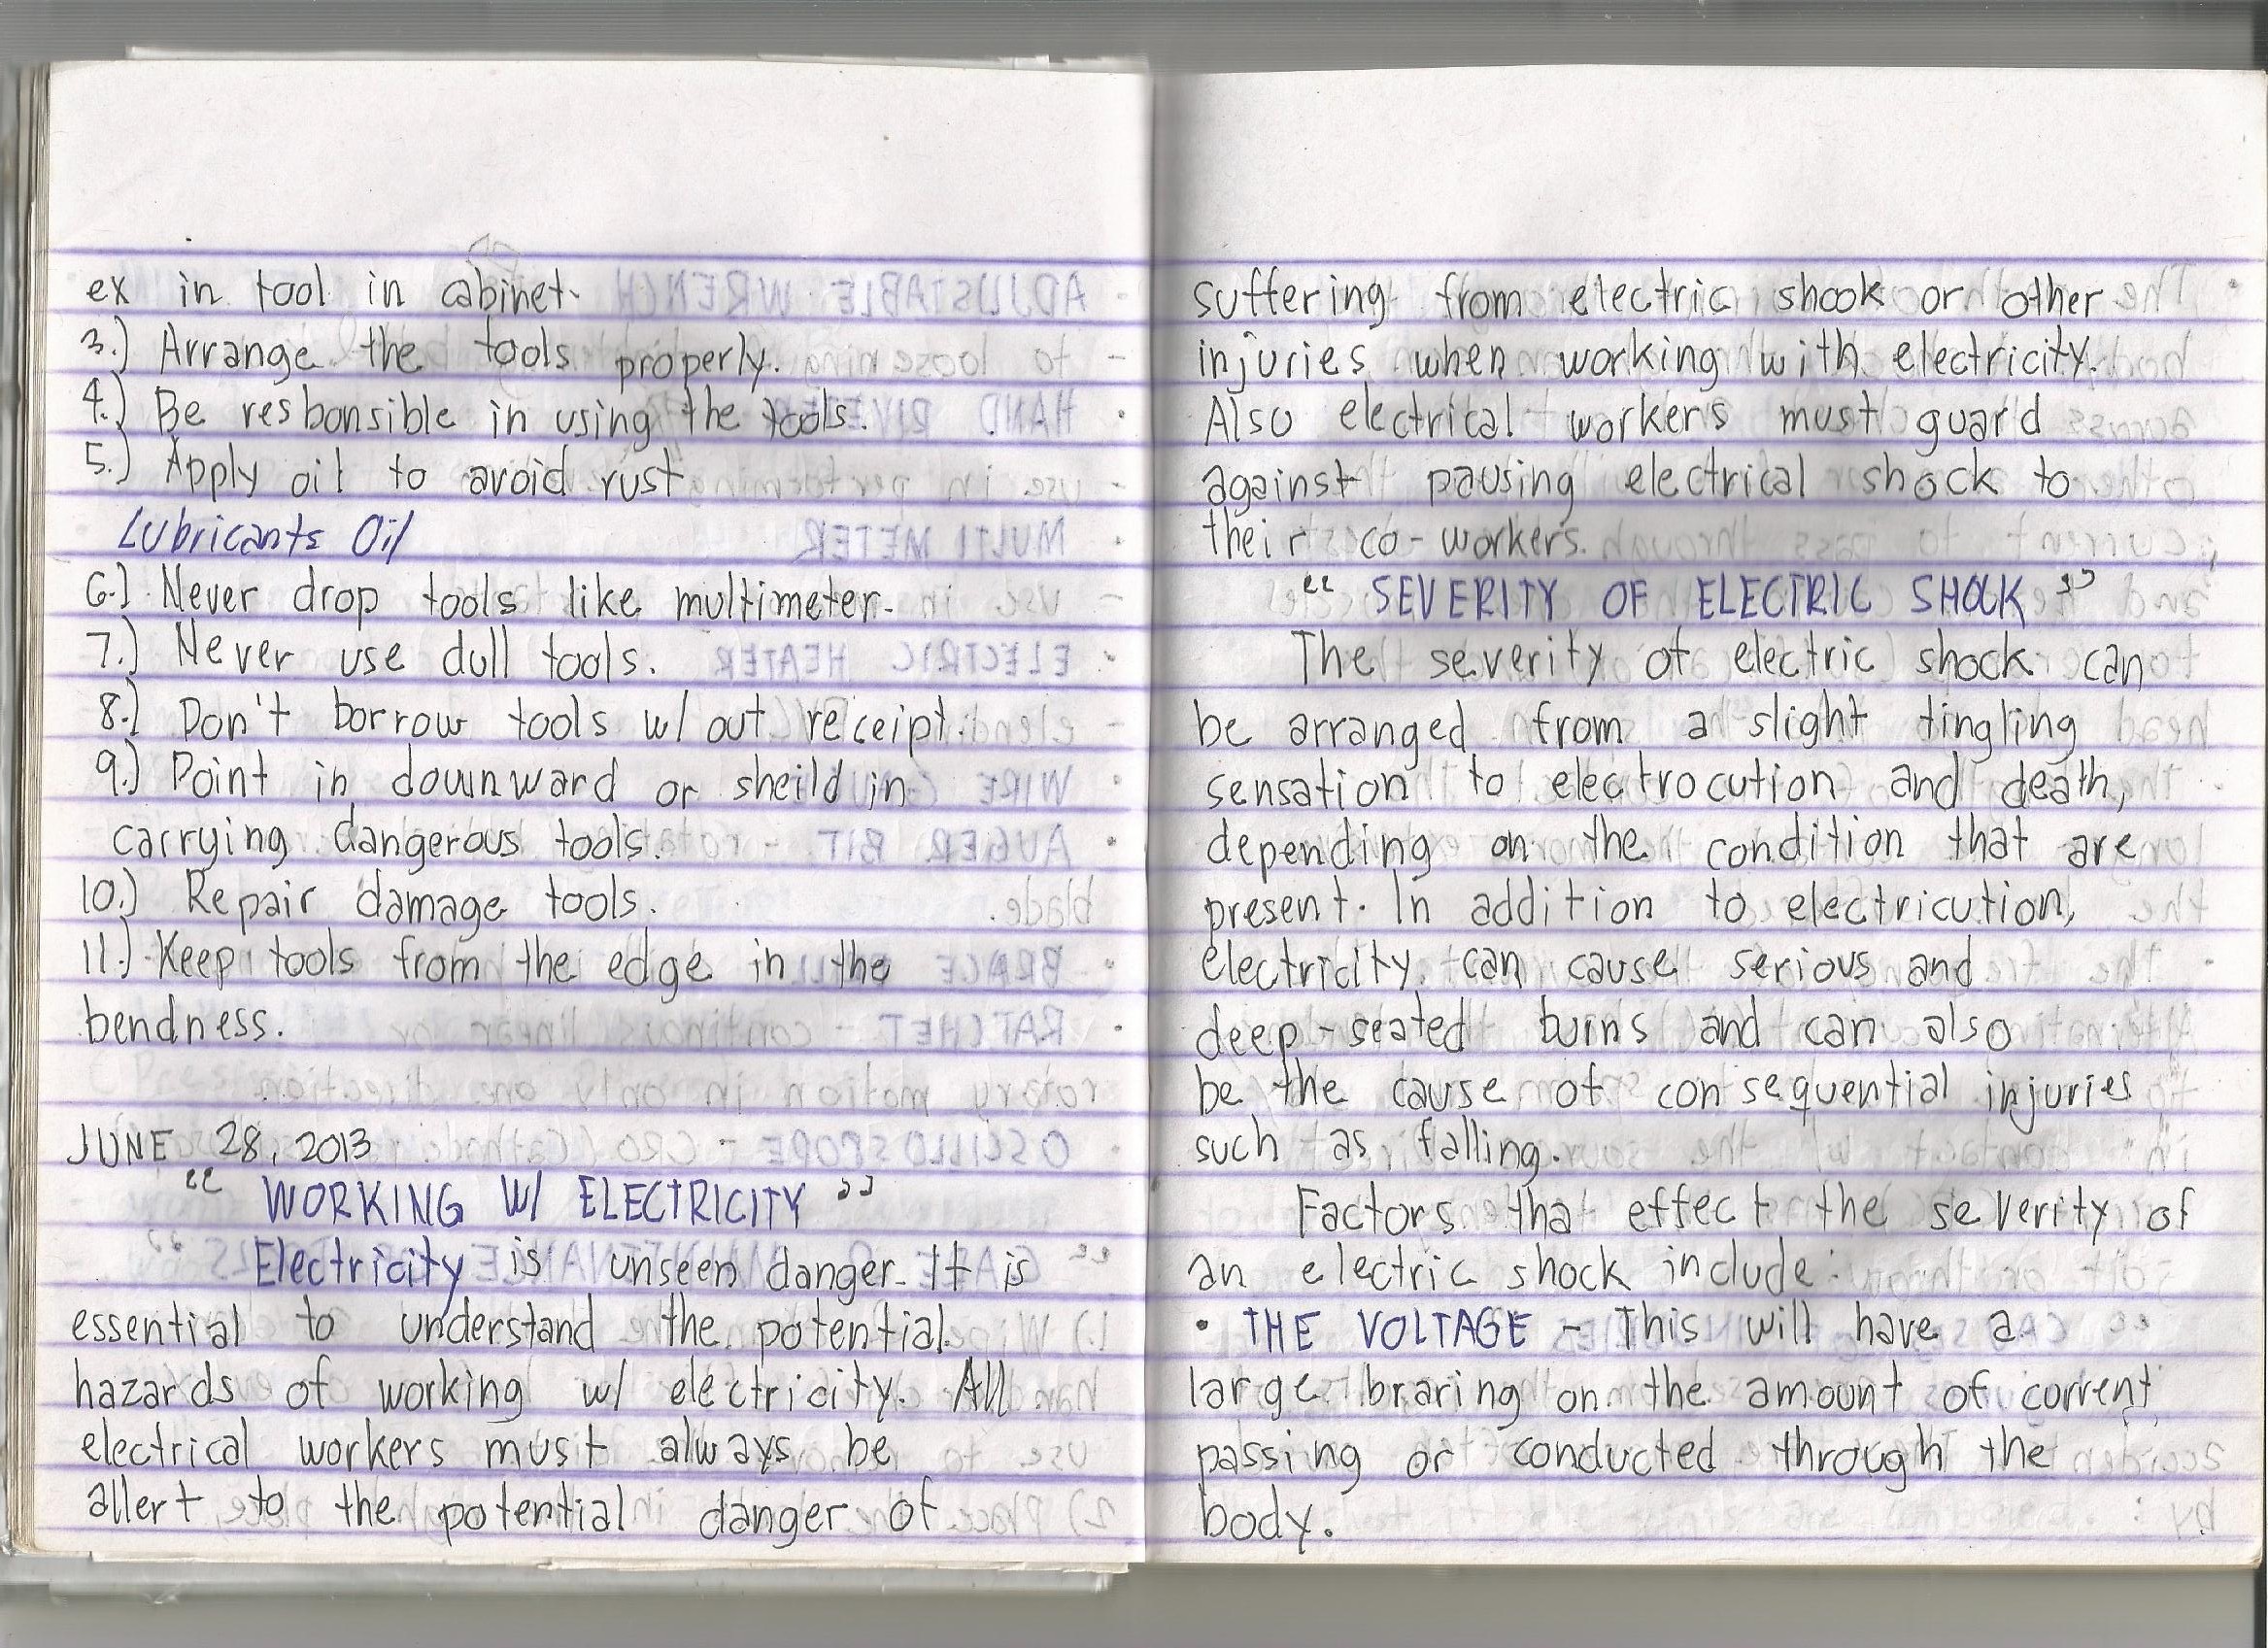 ex in tool in cabinet.
3.) Arrange the tools properly.
4.) Be resbonsible in using the tools.
5.) Apply oil to avoid rust
Lubricants Oil
6.) Never drop tools like multimeter.
7.) Never use dull tools.
8.) Don't borrow tools w/ out receipt.
9.) Point in downward or sheild in
carrying dangerous tools.
10.) Repair damage tools.
11.) Keep tools from the edge in the
bendness.
JUNE 28, 2013
“ WORKING W/ ELECTRICITY ”
Electricity is unseen danger. It is
essential to understand the potential
hazards of working w/ electricity. All
electrical workers must always be
allert to the potential danger of
suffering from electric shock or other
injuries when working with electricity.
Also electrical workers must guard
against pausing electrical shock to
their co-workers.
“ SEVERITY OF ELECTRIC SHOCK ”
The severity of electric shock can
be arranged from a slight tingling
sensation to electrocution and death,
depending on the condition that are
present. In addition to electricution,
electricity can cause serious and
deep-seated burns and can also
be the cause of consequential injuries
such as falling.
Factors that effect the severity of
an electric shock include:
• THE VOLTAGE - This will have a
large braring on the amount of current
passing or conducted through the
body.